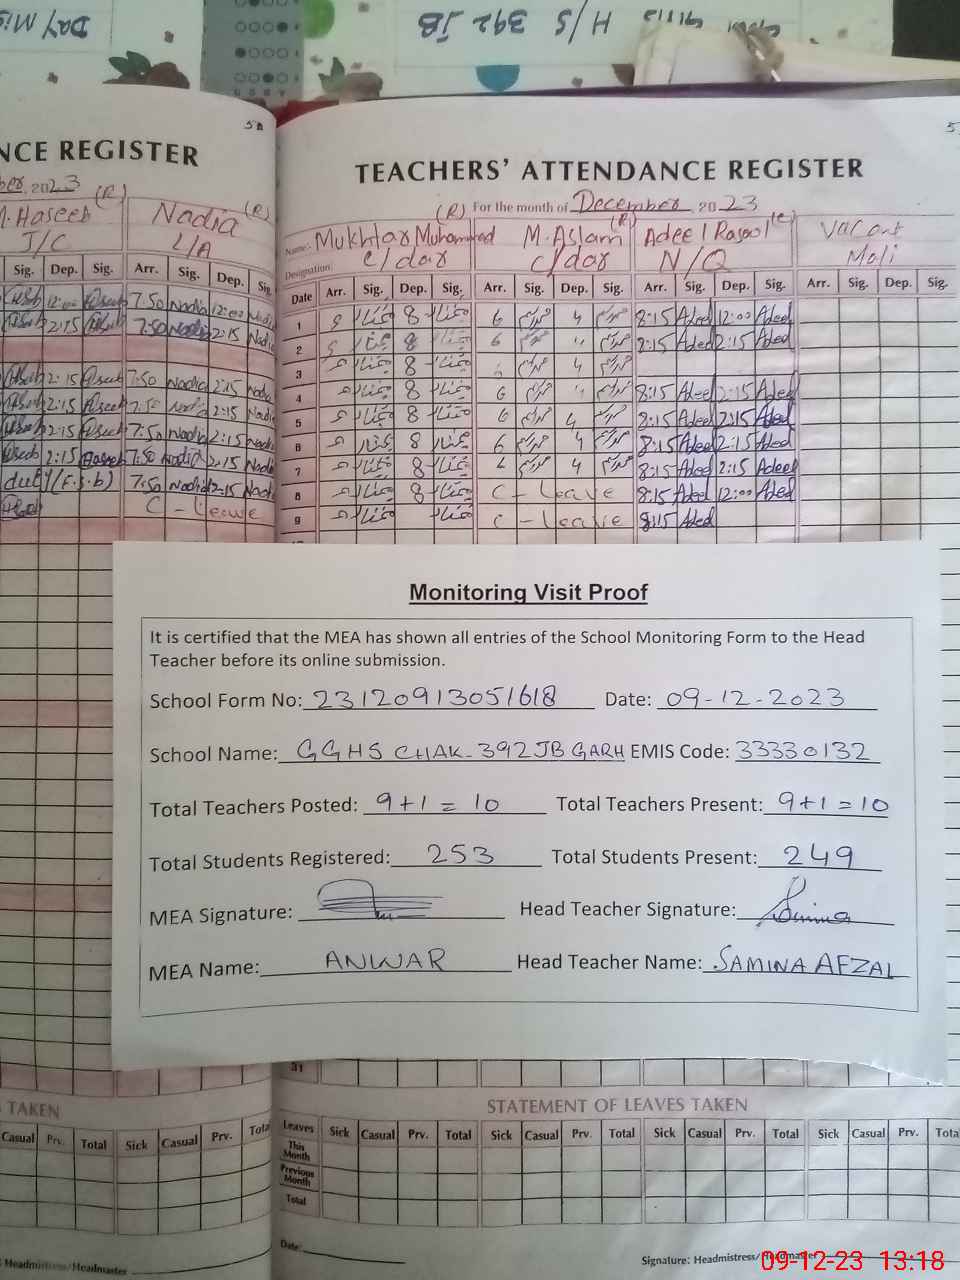 DAY
H/S 392 JB
NCE REGISTER
TEACHERS' ATTENDANCE REGISTER
2023
For the month of December, 2023
M. Haseeb (R)
Nadia (R)
Name: Mukhtar Muhammad (R)
M. Aslam (R)
Adeel Rasool
Vacant
J/C
L/A
Designation: C/dar
C/dar
N/Q
Mali
Sig. Dep. Sig. Arr. Sig. Dep. Sig.
Date Arr. Sig. Dep. Sig. Arr. Sig. Dep. Sig. Arr. Sig. Dep. Sig. Arr. Sig. Dep. Sig.
12:00 7:50 Nadia 12:00 Nadia
1 8 6 4 8:15 Adeel 12:00 Adeel
2:15 7:50 Nadia 2:15 Nadia
2 8 6 8:15 Adeel 2:15 Adeel
3 8 4
2:15 7:50 Nadia 2:15 Nadia
4 8 6 8:15 Adeel 2:15 Adeel
2:15 7:50 Nadia 2:15 Nadia
5 8 6 4 8:15 Adeel 2:15 Adeel
2:15 7:50 Nadia 2:15 Nadia
6 8 6 4 8:15 Adeel 2:15 Adeel
2:15 Haseeb 7:50 Nadia 2:15 Nadia
7 8 4 8:15 Adeel 2:15 Adeel
duty (F.S.b) 7:50 Nadia 2:15 Nadia
8 8 C - Leave 8:15 Adeel 12:00 Adeel
C - Leave
9 C - Leave 8:15 Adeel
Monitoring Visit Proof
It is certified that the MEA has shown all entries of the School Monitoring Form to the Head
Teacher before its online submission.
School Form No: 23120913051618 Date: 09-12-2023
School Name: GGHS CHAK-392JB GARH EMIS Code: 33330132
Total Teachers Posted: 9+1=10 Total Teachers Present: 9+1=10
Total Students Registered: 253 Total Students Present: 249
MEA Signature: Head Teacher Signature: Samina
MEA Name: ANWAR Head Teacher Name: SAMINA AFZAL
31
TAKEN
STATEMENT OF LEAVES TAKEN
Casual Prv. Total Sick Casual Prv. Total
Leaves Sick Casual Prv. Total Sick Casual Prv. Total Sick Casual Prv. Total Sick Casual Prv. Total
This Month
Previous Month
Total
Date:
Headmistress/Headmaster
Signature: Headmistress/Headmaster
09-12-23 13:18